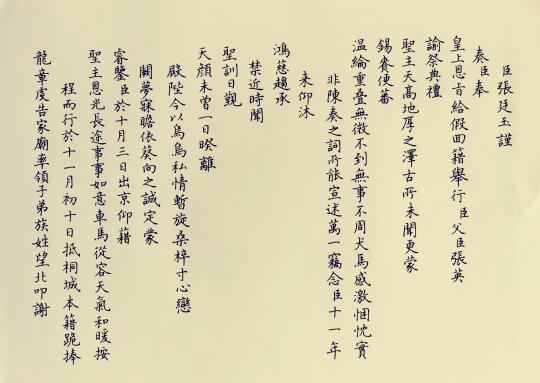 臣張廷玉謹
奏臣奉
皇上恩旨給假回籍舉行臣父臣張英
諭祭典禮
聖主天高地厚之澤古所未聞更蒙
錫賚便蕃
溫綸重疊無微不到無事不周犬馬感激悃忱實
非陳奏之詞所能宣述萬一竊念臣十一年
來仰沐
鴻慈趨承
禁近時聞
聖訓日覲
天顏未曾一日暌離
殿陛今以烏鳥私情暫旋桑梓寸心戀
闕夢寐瞻依葵向之誠定蒙
睿鑒臣於十月三日出京仰藉
聖主恩光長途事事如意車馬從容天氣和暖按
程而行於十一月初十日抵桐城本籍跪捧
龍章虔告家廟率領子弟族姓望北叩謝